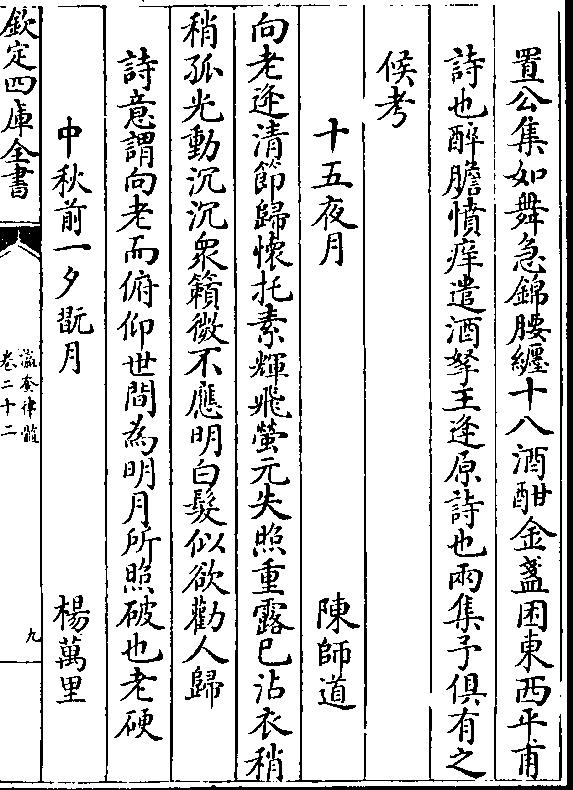 置公集如舞急錦腰纏十八酒酣金盞困東西平甫
詩也醉膽憤痒遣酒拏王逢原詩也兩集予俱有之
候考
十五夜月 陳師道
向老逢清節歸懷托素輝飛螢元失照重露已沾衣稍
稍孤光動沉沉衆籟微不應明白髮似欲勸人歸
詩意謂向老而俯仰世間為明月所照破也老硬
中秋前一夕翫月 楊萬里
欽定四庫全書
瀛奎律髓
卷二十二
九